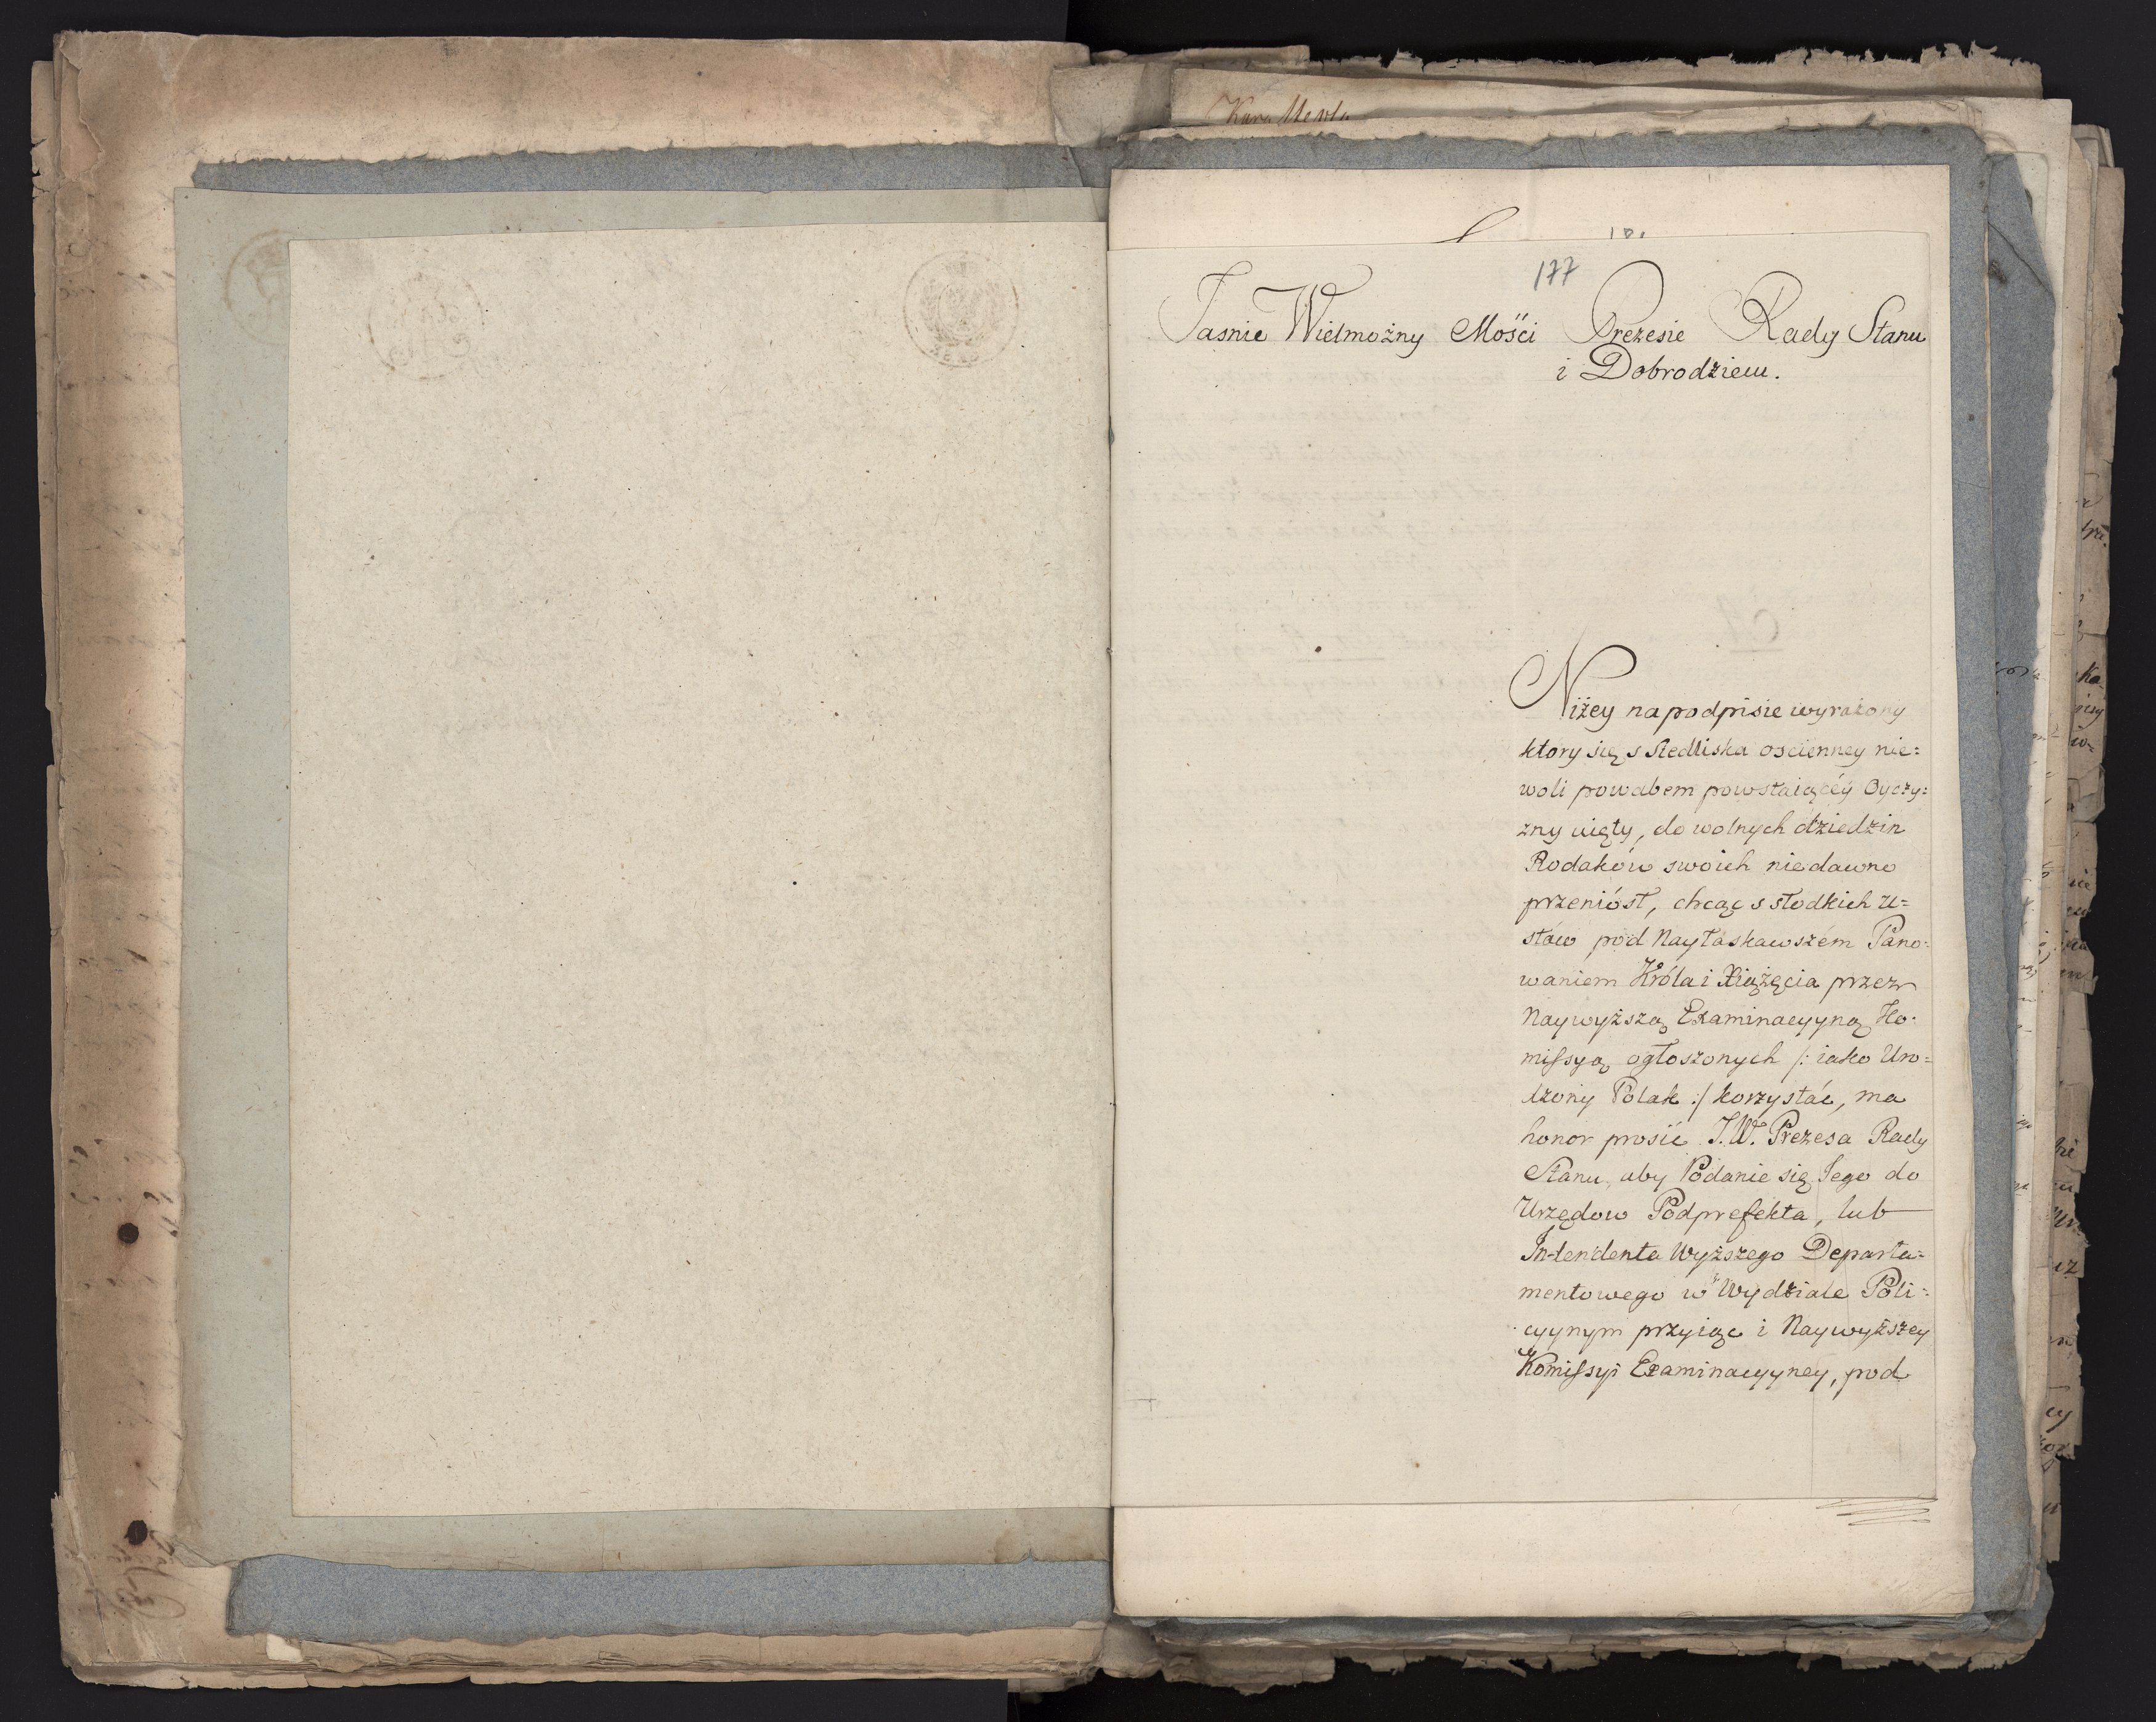 177
Jasnie Wielmożny Mości Prezesie Rady Stanu
i Dobrodzieiu.
Niżey na podpisie wyrażony
ktory się s siedliska oscienney nie=
woli powabem powstaiącéy Oyczy=
zny uięty, do wolnych dziedzin
Rodaków swoich niedawno
przeniósł, chcąc s słodkich U=
staw pod Nayłaskawszém Pano=
waniem Króla i Xiążęcia przez
Naywyższą Examinacyyną Ko=
missyą ogłoszonych /: iako Uro=
dzony Polak :/ korzystać, ma
honor prosić J.W. Prezesa Rady
Stanu, aby Podanie się Jego do
Urzędow Podprefekta, lub
Intendenta Wyższego Departa=
mentowego w Wydziale Poli=
cyynym przyiąc i Naywyższey
Komissyi Examinacyyney, pod